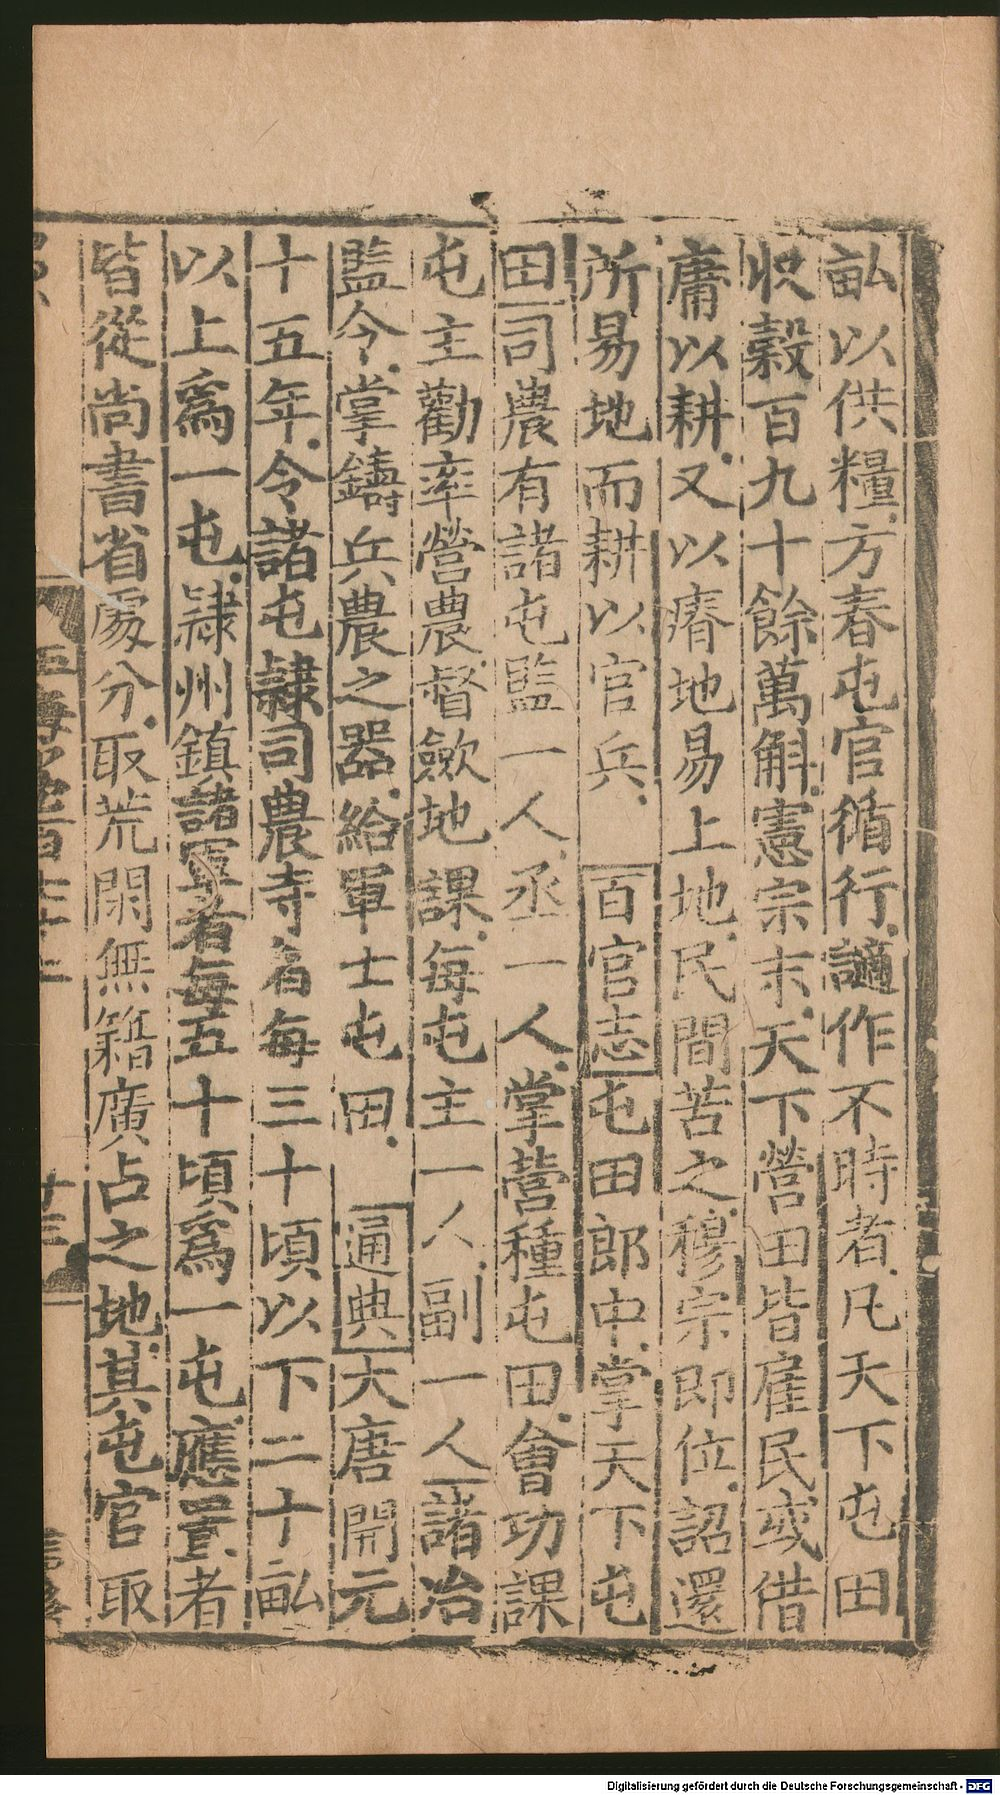 畝以供糧方春屯官循行讁作不時者凡天下屯田
收穀百九十餘萬斛憲宗末天下營田皆雇民或借
庸以耕又以瘠地易上地民間苦之穆宗即位詔還
所易地而耕以官兵　百官志屯田郎中掌天下屯
田司農有諸屯監一人丞一人掌營種屯田會功課
屯主勸率營農督斂地課每屯主一人副一人諸冶
監令掌鑄兵農之器給軍士屯田　通典大唐開元
十五年令諸屯隸司農寺者每三十頃以下二十畝
以上為一屯隸州鎮諸軍者每五十頃為一屯應置者
皆從尚書省處分取荒閑無籍廣占之地其屯官取
玉海
廿三
Digitalisierung gefördert durch die Deutsche Forschungsgemeinschaft - DFG